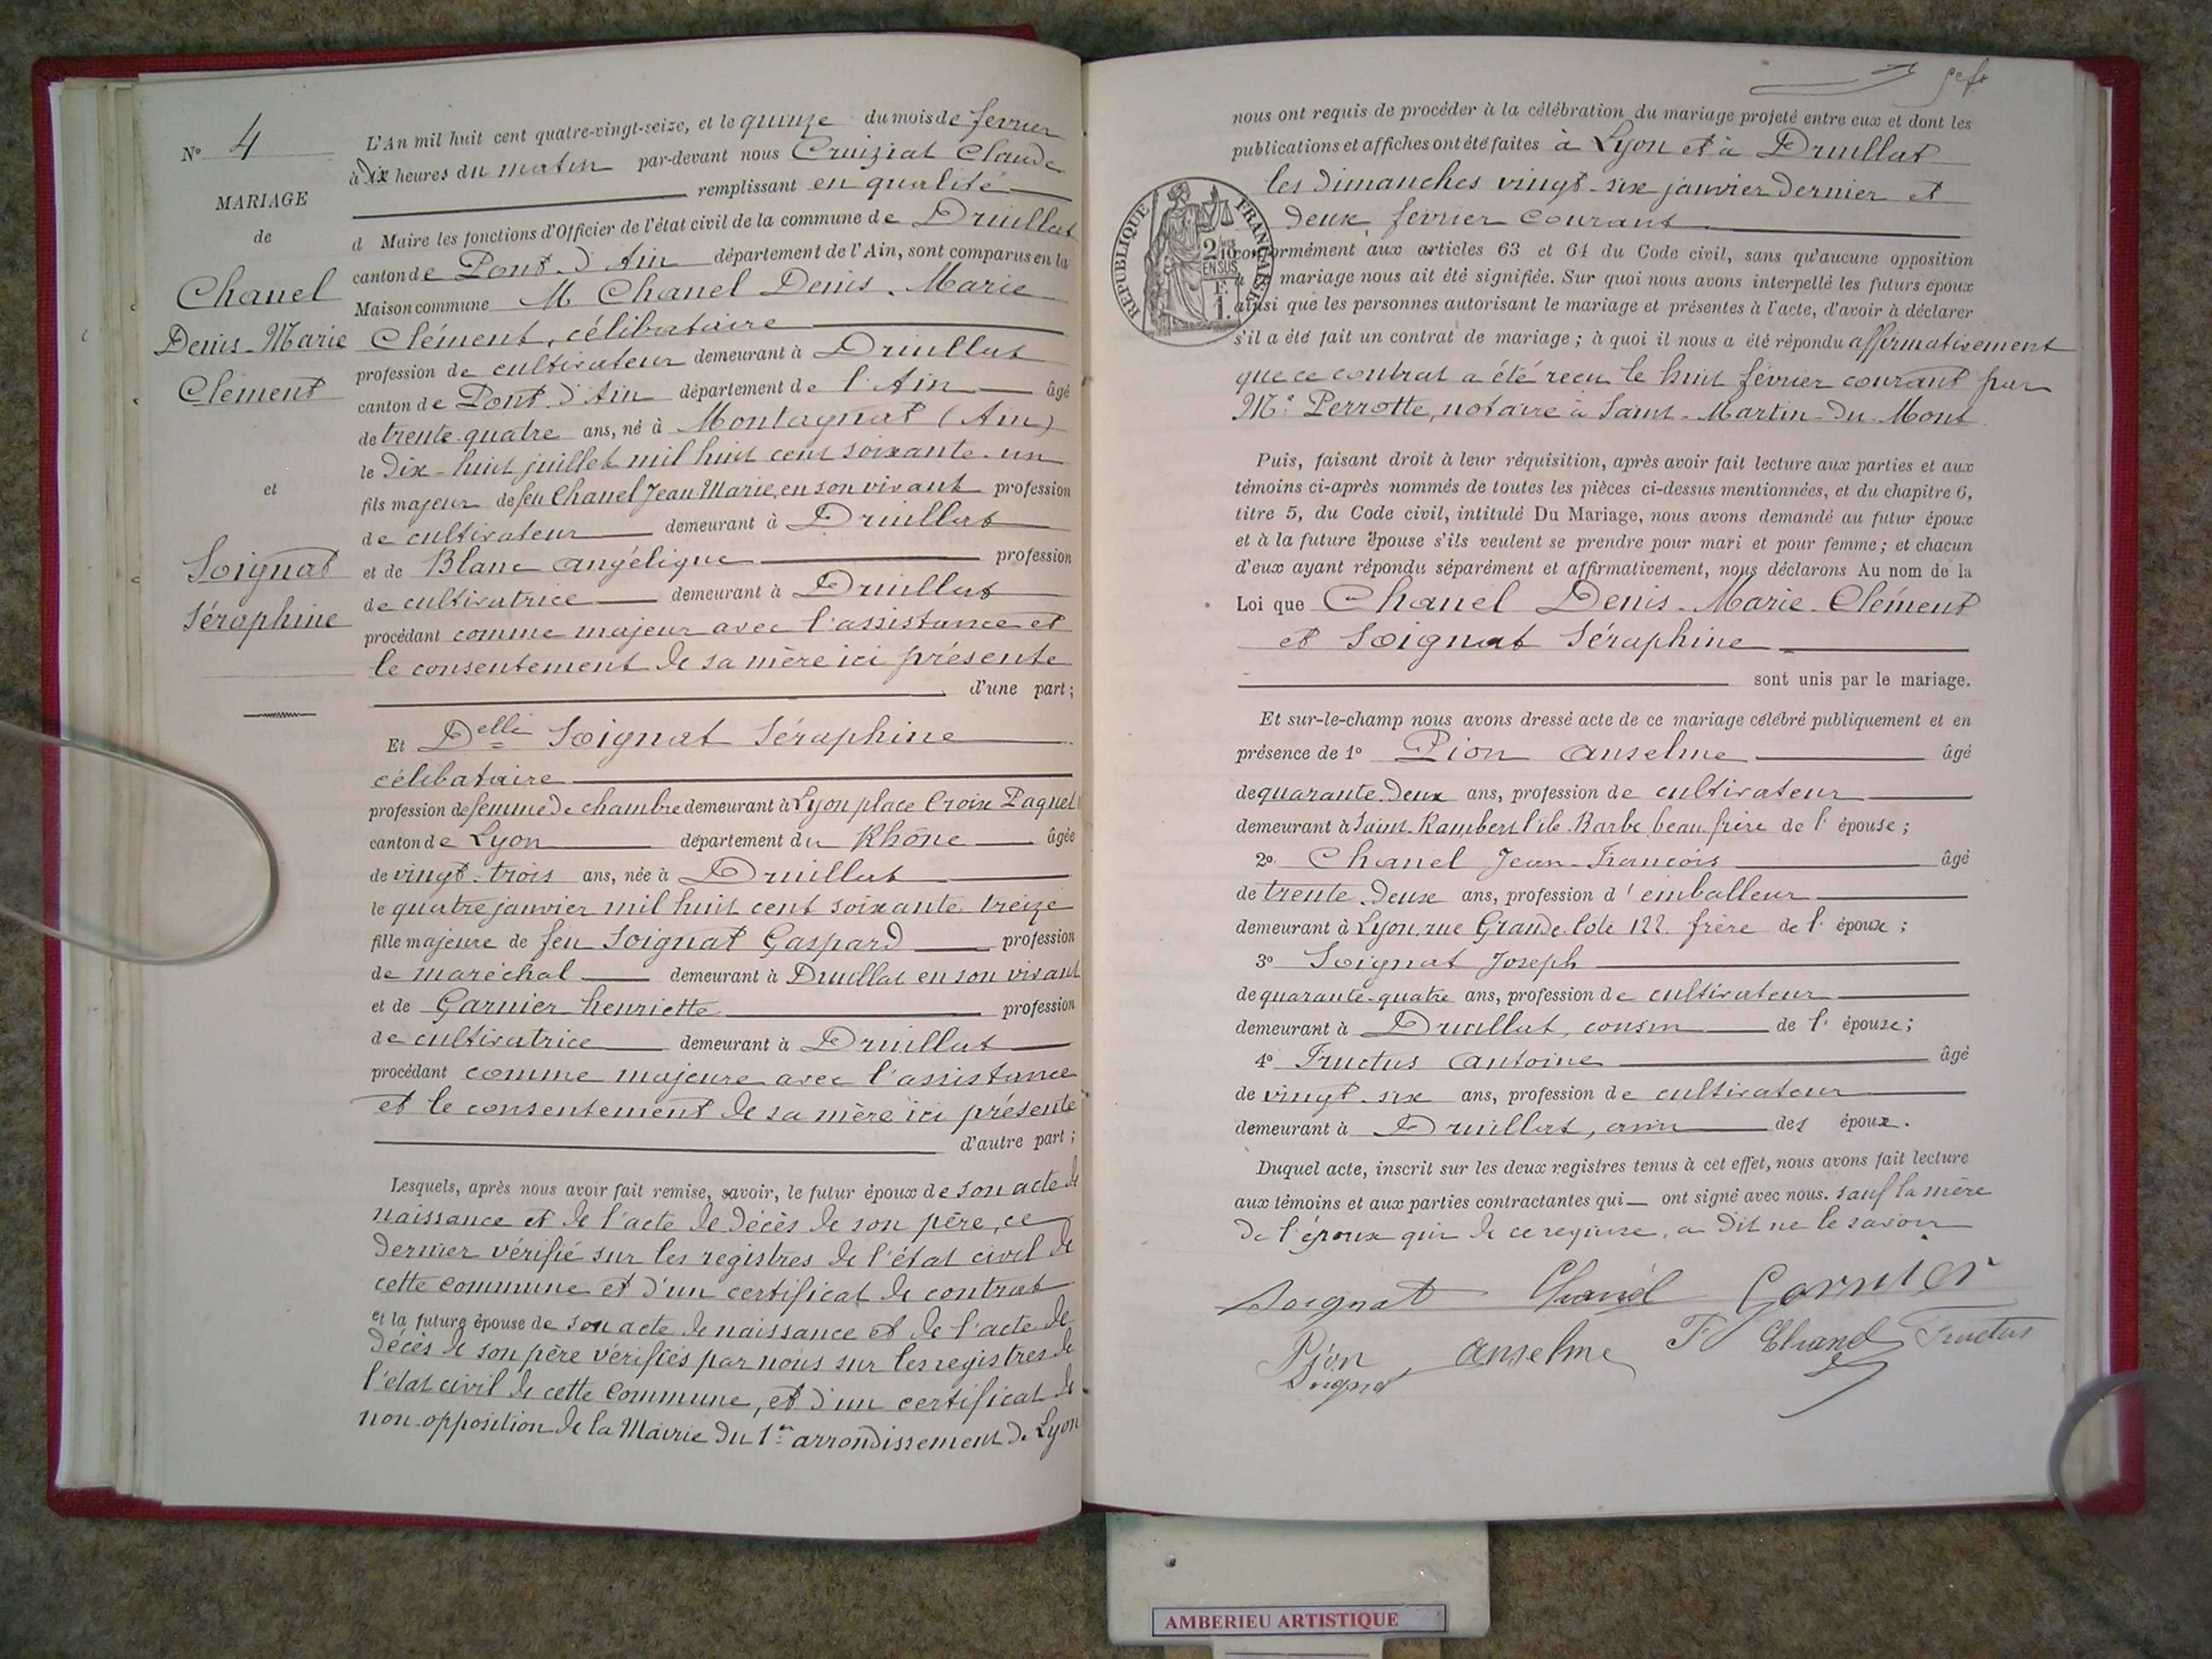 N° 4
MARIAGE
de
Chanel
Denis-Marie
Clément
et
Soignat
Séraphine
L'An mil huit cent quatre-vingt-seize, et le quinze du mois de fevrier
à dix heures du matin par-devant nous Cruiziat Claude
remplissant en qualité
d Maire les fonctions d'Officier de l'état civil de la commune de Druillat
canton de Pont-d'Ain département de l'Ain, sont comparus en la
Maison commune M Chanel Denis-Marie
Clément, célibataire
profession de cultivateur demeurant à Druillat
canton de Pont d'Ain département de l'Ain âgé
de trente-quatre ans, né à Montagnat (Ain)
le dix-huit juillet mil huit cent soixante-un
fils majeur de feu Chanel Jean-Marie, en son vivant profession
de cultivateur demeurant à Druillat
et de Blanc angélique profession
de cultivatrice demeurant à Druillat
procédant comme majeur avec l'assistance et
le consentement de sa mère ici présente
d'une part;
Et Delle Soignat Séraphine
célibataire
profession de femme de chambre demeurant à Lyon place Croix Paquet
canton de Lyon département du Rhône âgée
de vingt-trois ans, née à Druillat
le quatre janvier mil huit cent soixante treize
fille majeure de feu Soignat Gaspard profession
de maréchal demeurant à Druillat en son vivant
et de Garnier henriette profession
de cultivatrice demeurant à Druillat
procédant comme majeure avec l'assistance
et le consentement de sa mère ici présente
d'autre part;
Lesquels, après nous avoir fait remise, savoir, le futur époux de son acte de
naissance et de l'acte de décès de son père, ce
dernier vérifié sur les registres de l'état civil de
cette commune et d'un certificat de contrat
et la future épouse de son acte de naissance et de l'acte de
décès de son père vérifiés par nous sur les registres de
l'état civil de cette commune, et d'un certificat de
non-opposition de la Mairie du 1er arrondissement de Lyon
nous ont requis de procéder à la célébration du mariage projeté entre eux et dont les
publications et affiches ont été faites à Lyon et à Druillat
les dimanches vingt-six janvier dernier et
deux fevrier courant
RÉPUBLIQUE FRANÇAISE
2/10 EN SUS
1F.
conformément aux articles 63 et 64 du Code civil, sans qu'aucune opposition
mariage nous ait été signifiée. Sur quoi nous avons interpellé les futurs époux
ainsi que les personnes autorisant le mariage et présentes à l'acte, d'avoir à déclarer
s'il a été fait un contrat de mariage; à quoi il nous a été répondu affirmativement
que ce contrat a été reçu le huit février courant par
Me Perrotte, notaire à Saint-Martin-du-Mont
Puis, faisant droit à leur réquisition, après avoir fait lecture aux parties et aux
témoins ci-après nommés de toutes les pièces ci-dessus mentionnées, et du chapitre 6,
titre 5, du Code civil, intitulé Du Mariage, nous avons demandé au futur époux
et à la future épouse s'ils veulent se prendre pour mari et pour femme; et chacun
d'eux ayant répondu séparément et affirmativement, nous déclarons Au nom de la
Loi que Chanel Denis-Marie-Clément
et Soignat Séraphine
sont unis par le mariage.
Et sur-le-champ nous avons dressé acte de ce mariage célébré publiquement et en
présence de 1° Pion Anselme âgé
de quarante-deux ans, profession de cultivateur
demeurant à Saint-Rambert l'ile-Barbe, beau-frère de l'épouse;
2° Chanel Jean-François âgé
de trente-deux ans, profession d'emballeur
demeurant à Lyon, rue Grande Côte 122 frère de l'époux;
3° Soignat Joseph
de quarante-quatre ans, profession de cultivateur
demeurant à Druillat, cousin de l'épouse;
4° Fructus Antoine âgé
de vingt-six ans, profession de cultivateur
demeurant à Druillat, ami des époux.
Duquel acte, inscrit sur les deux registres tenus à cet effet, nous avons fait lecture
aux témoins et aux parties contractantes qui ont signé avec nous. sauf la mère
de l'époux qui de ce requise, a dit ne le savoir
Soignat Chanel Garnier
Pion Anselme F Chanel Fructus
Soignat
AMBERIEU ARTISTIQUE